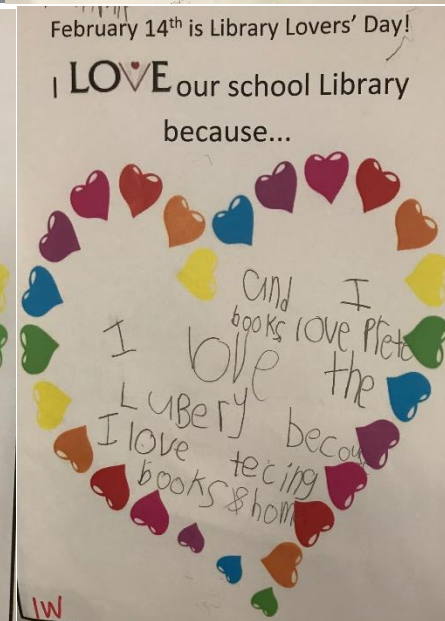 February 14th is Library Lovers' Day!
I LOVE our school Library
because...
and I
books love Prete
I love the
LuBery becou
I love tecing
books & hom
IW